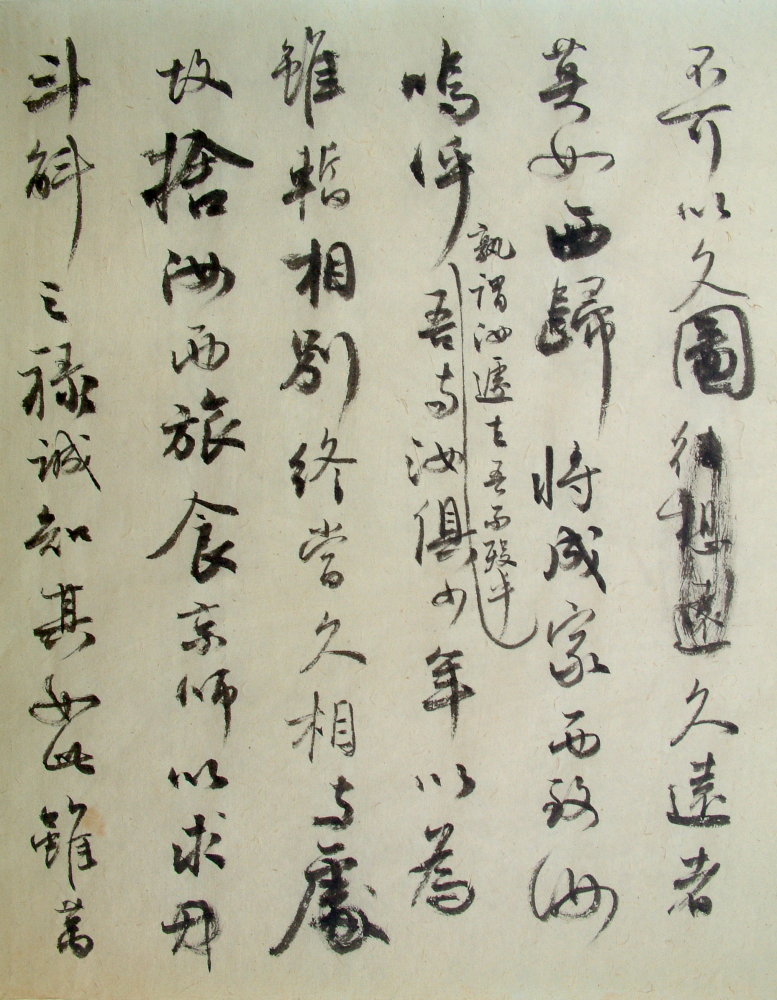 不可以久圖久遠者
莫如西歸將成家而致汝
孰謂汝遽去吾而歿乎
嗚呼吾与汝俱少年以為
雖暫相別終當久相与處
故捨汝而旅食京師以求
斗斛之禄誠知其如此雖萬